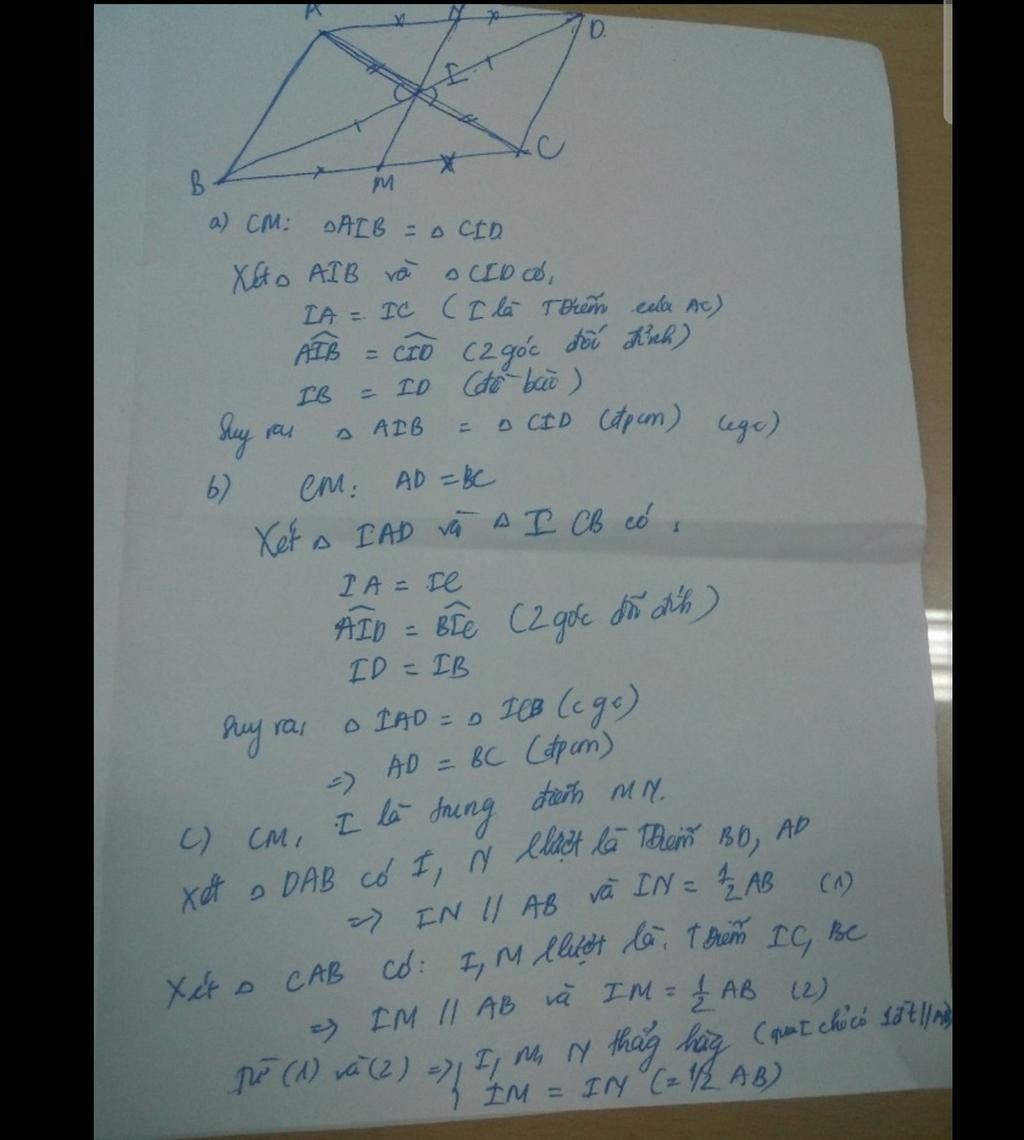 A N D
I
B M C
a) CM: △AIB = △ CID
Xét △ AIB và △ CID có,
IA = IC ( I là Tđiểm của AC)
AIB = CID (2 góc đối đỉnh)
IB = ID (đề bài)
Suy ra, △ AIB = △ CID (đpcm) (cgc)
b) CM: AD = BC
Xét △ IAD và △ I CB có :
IA = IC
AID = BIC (2 góc đđ đỉnh)
ID = IB
Suy ra, △ IAD = △ ICB (c gc)
=> AD = BC (đpcm)
c) CM, I là trung điểm MN.
Xét △ DAB có I, N llượt là Tđiểm BD, AD
=> IN // AB và IN = 1/2 AB (1)
Xét △ CAB có: I, M llượt là. Tđiểm IC, BC
=> IM // AB và IM = 1/2 AB (2)
Từ (1) và (2) => { I, M, N thẳg hàg (qua I chỉ có 1đt // AB
IM = IN (= 1/2 AB)